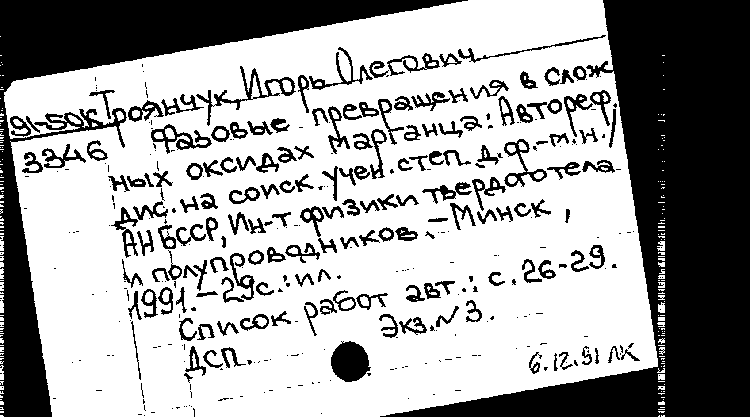 Троянчук, Игорь Олегович.
91-50К
3346
Фазовые превращения в слож
ных оксидах марганца: Автореф.
дис. на соиск. учен. степ. д.ф.-м.н. /
АН БССР, Ин-т физики твердого тела
и полупроводников. - Минск,
1991. - 29с.: ил.
Список работ авт.: с. 26-29.
Экз. N 3.
ДСП.
6.12.91 ЛК